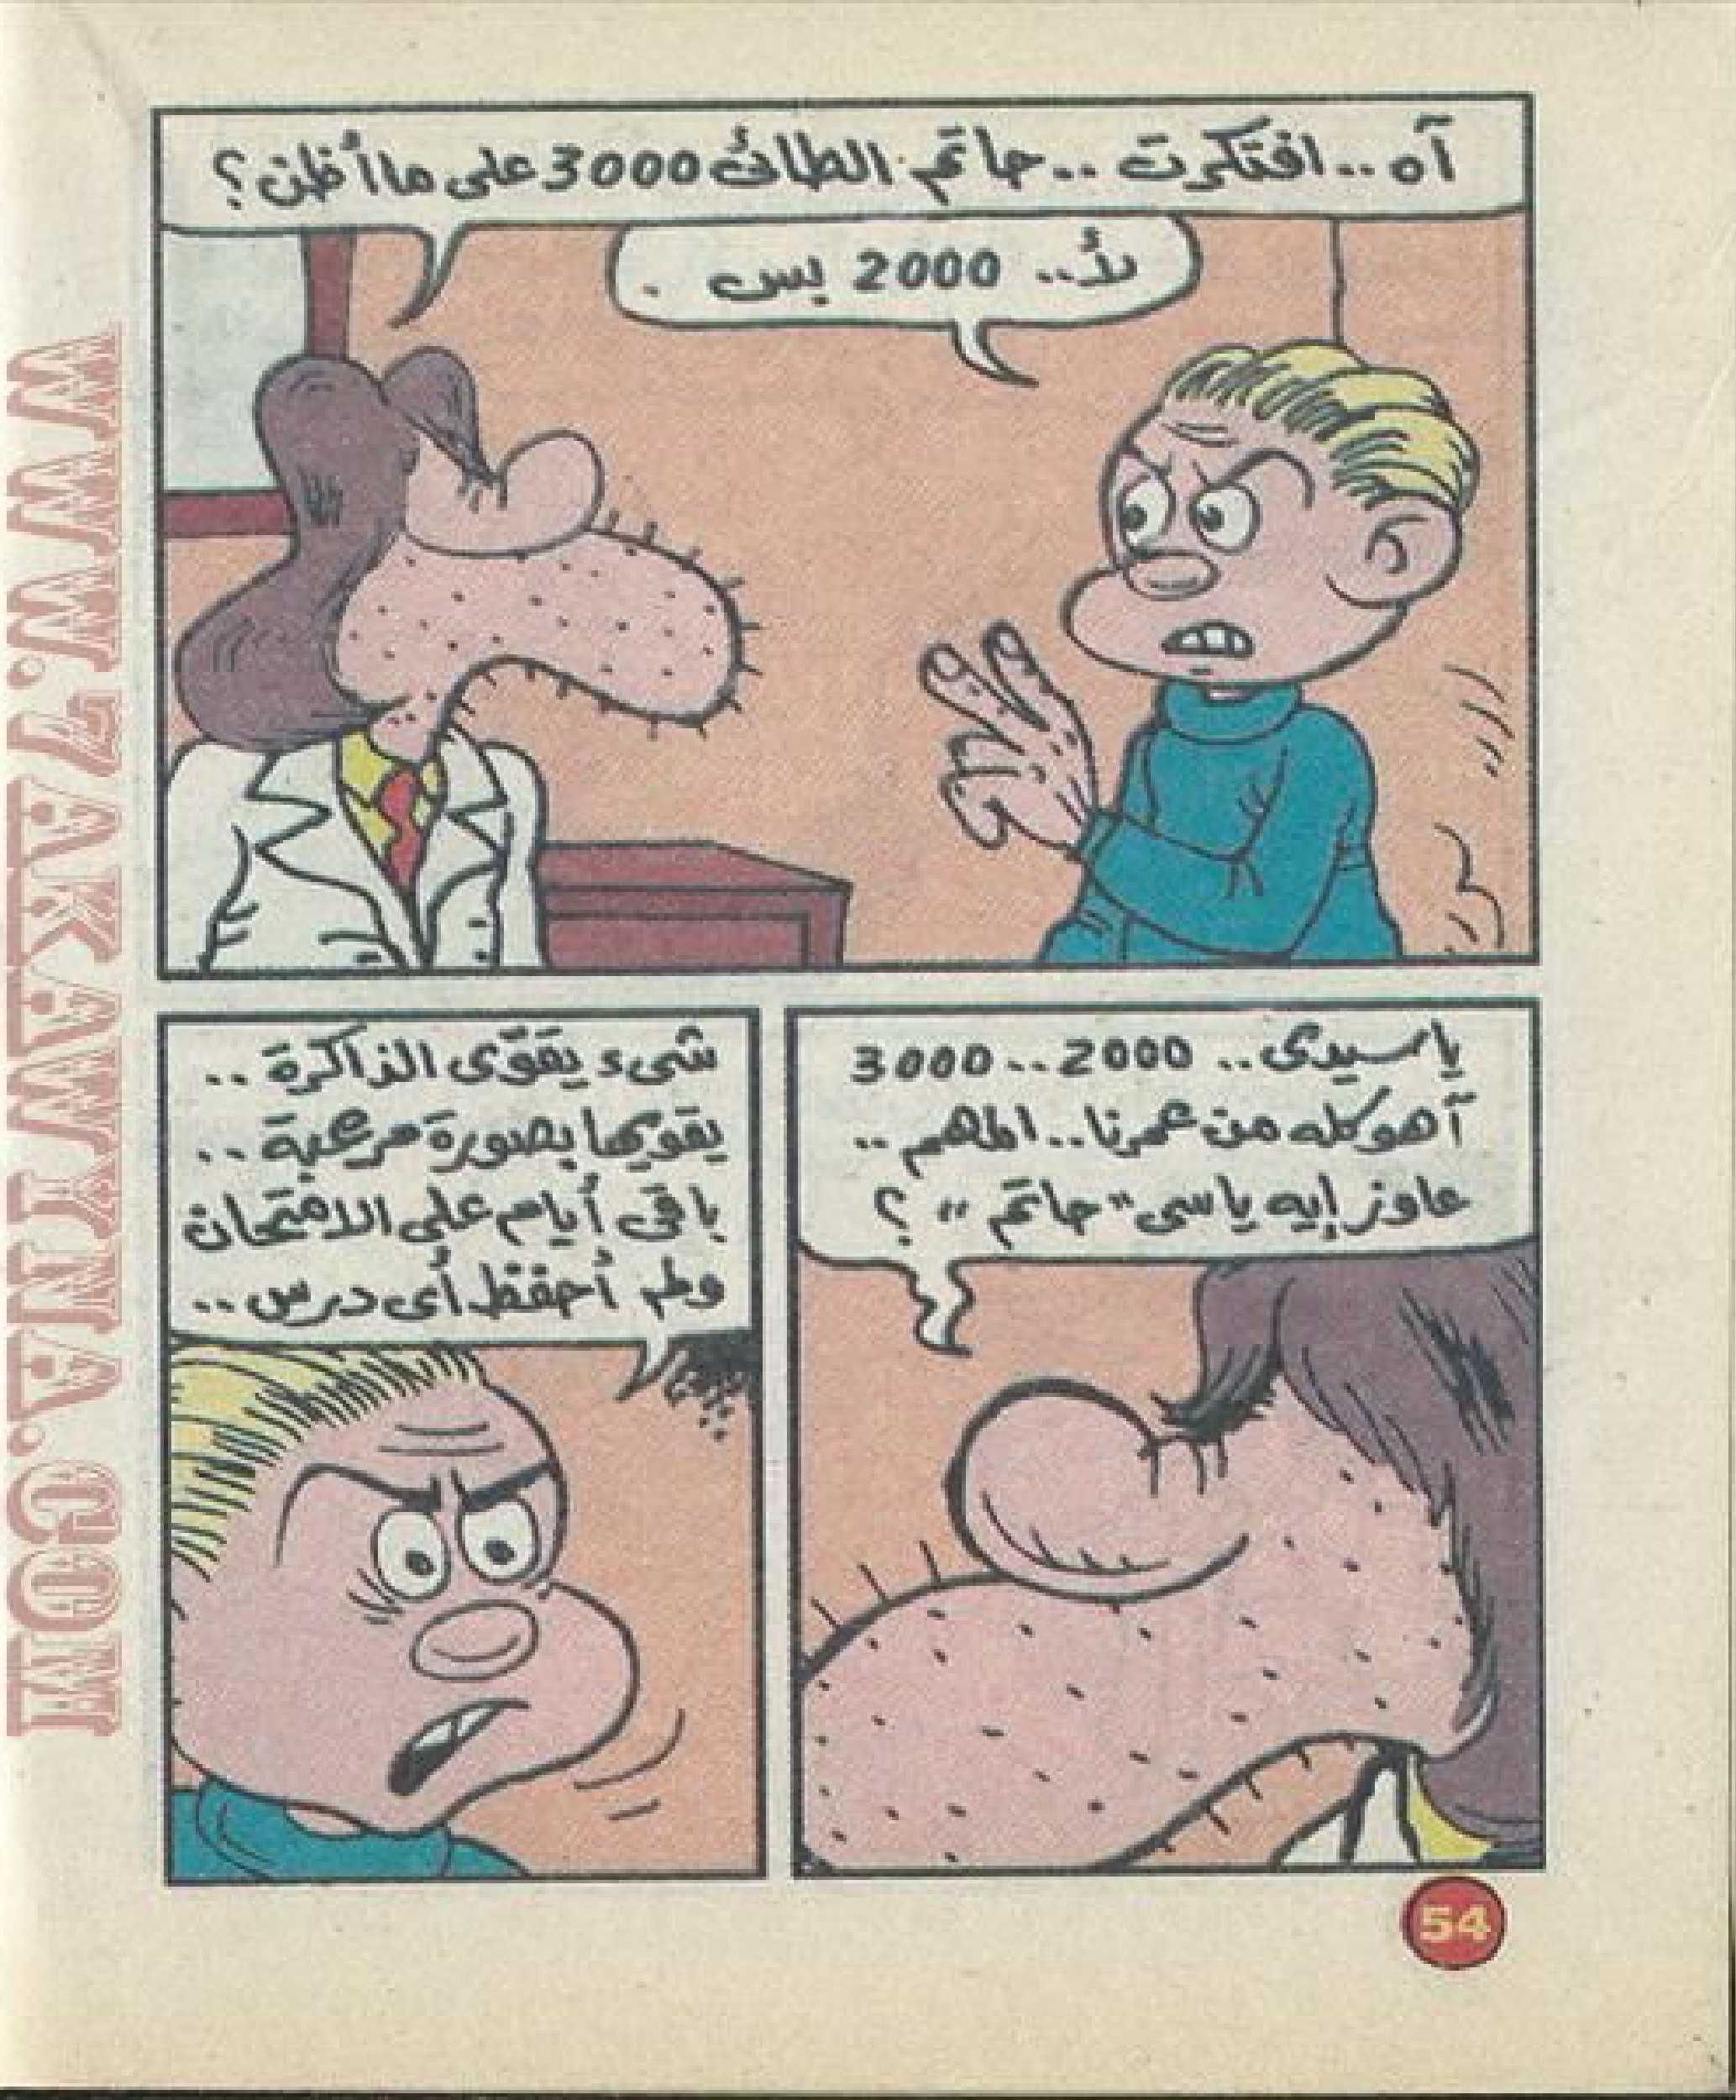 آه.. افتكرت.. حاتم الطائى 3000 على ما أظن؟
لأ.. 2000 بس .
ياسيدى.. 2000.. 3000
آهو كله من عمرنا.. المهم..
عاوز إيه ياسى "حاتم"؟
شىء يقوّى الذاكرة..
يقويها بصورة مرعبة..
باقى أيام على الامتحان
ولم أحفظ أى درس..
54
WWW.ZAKAWYNA.COM